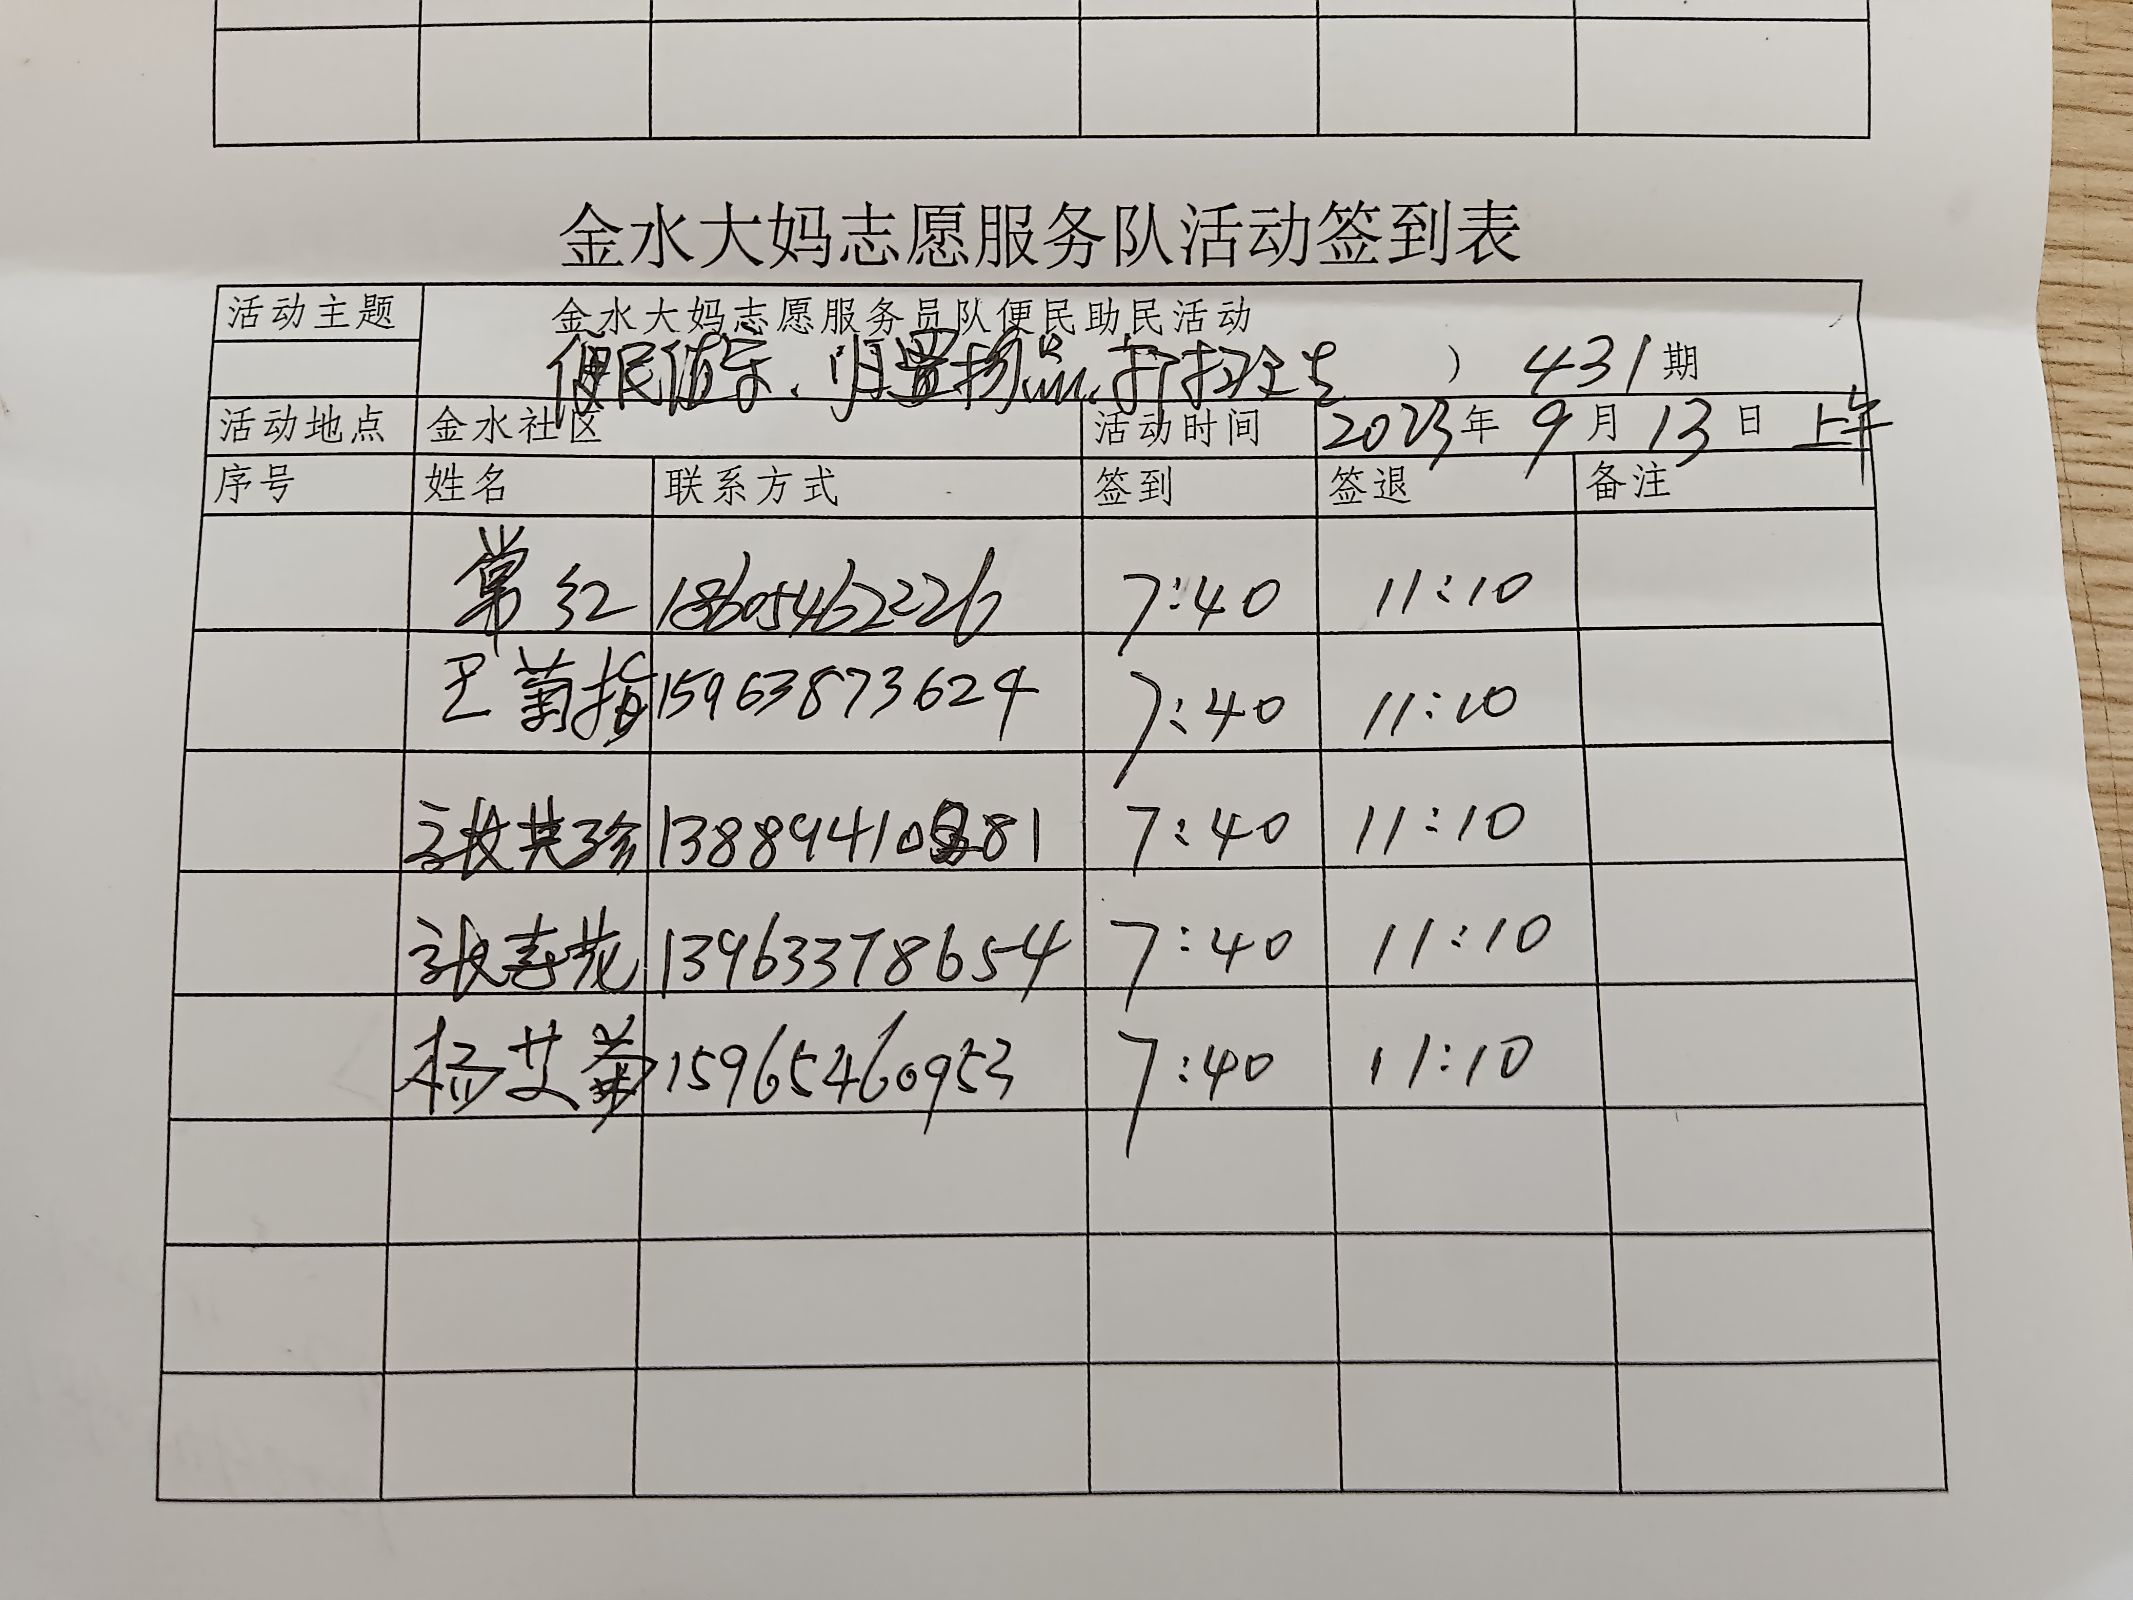 金水大妈志愿服务队活动签到表
活动主题 金水大妈志愿服务员队便民助民活动
便民值守、归置物品、打扫卫生 ） 431期
活动地点 金水社区 活动时间 2023年9月13日 上午
序号 姓名 联系方式 签到 签退 备注
常红 18605462226 7:40 11:10
王菊指 15963873624 7:40 11:10
张共珍 13889410 81 7:40 11:10
张寿花 13963378654 7:40 11:10
杨艾菊 15965460953 7:40 11:10